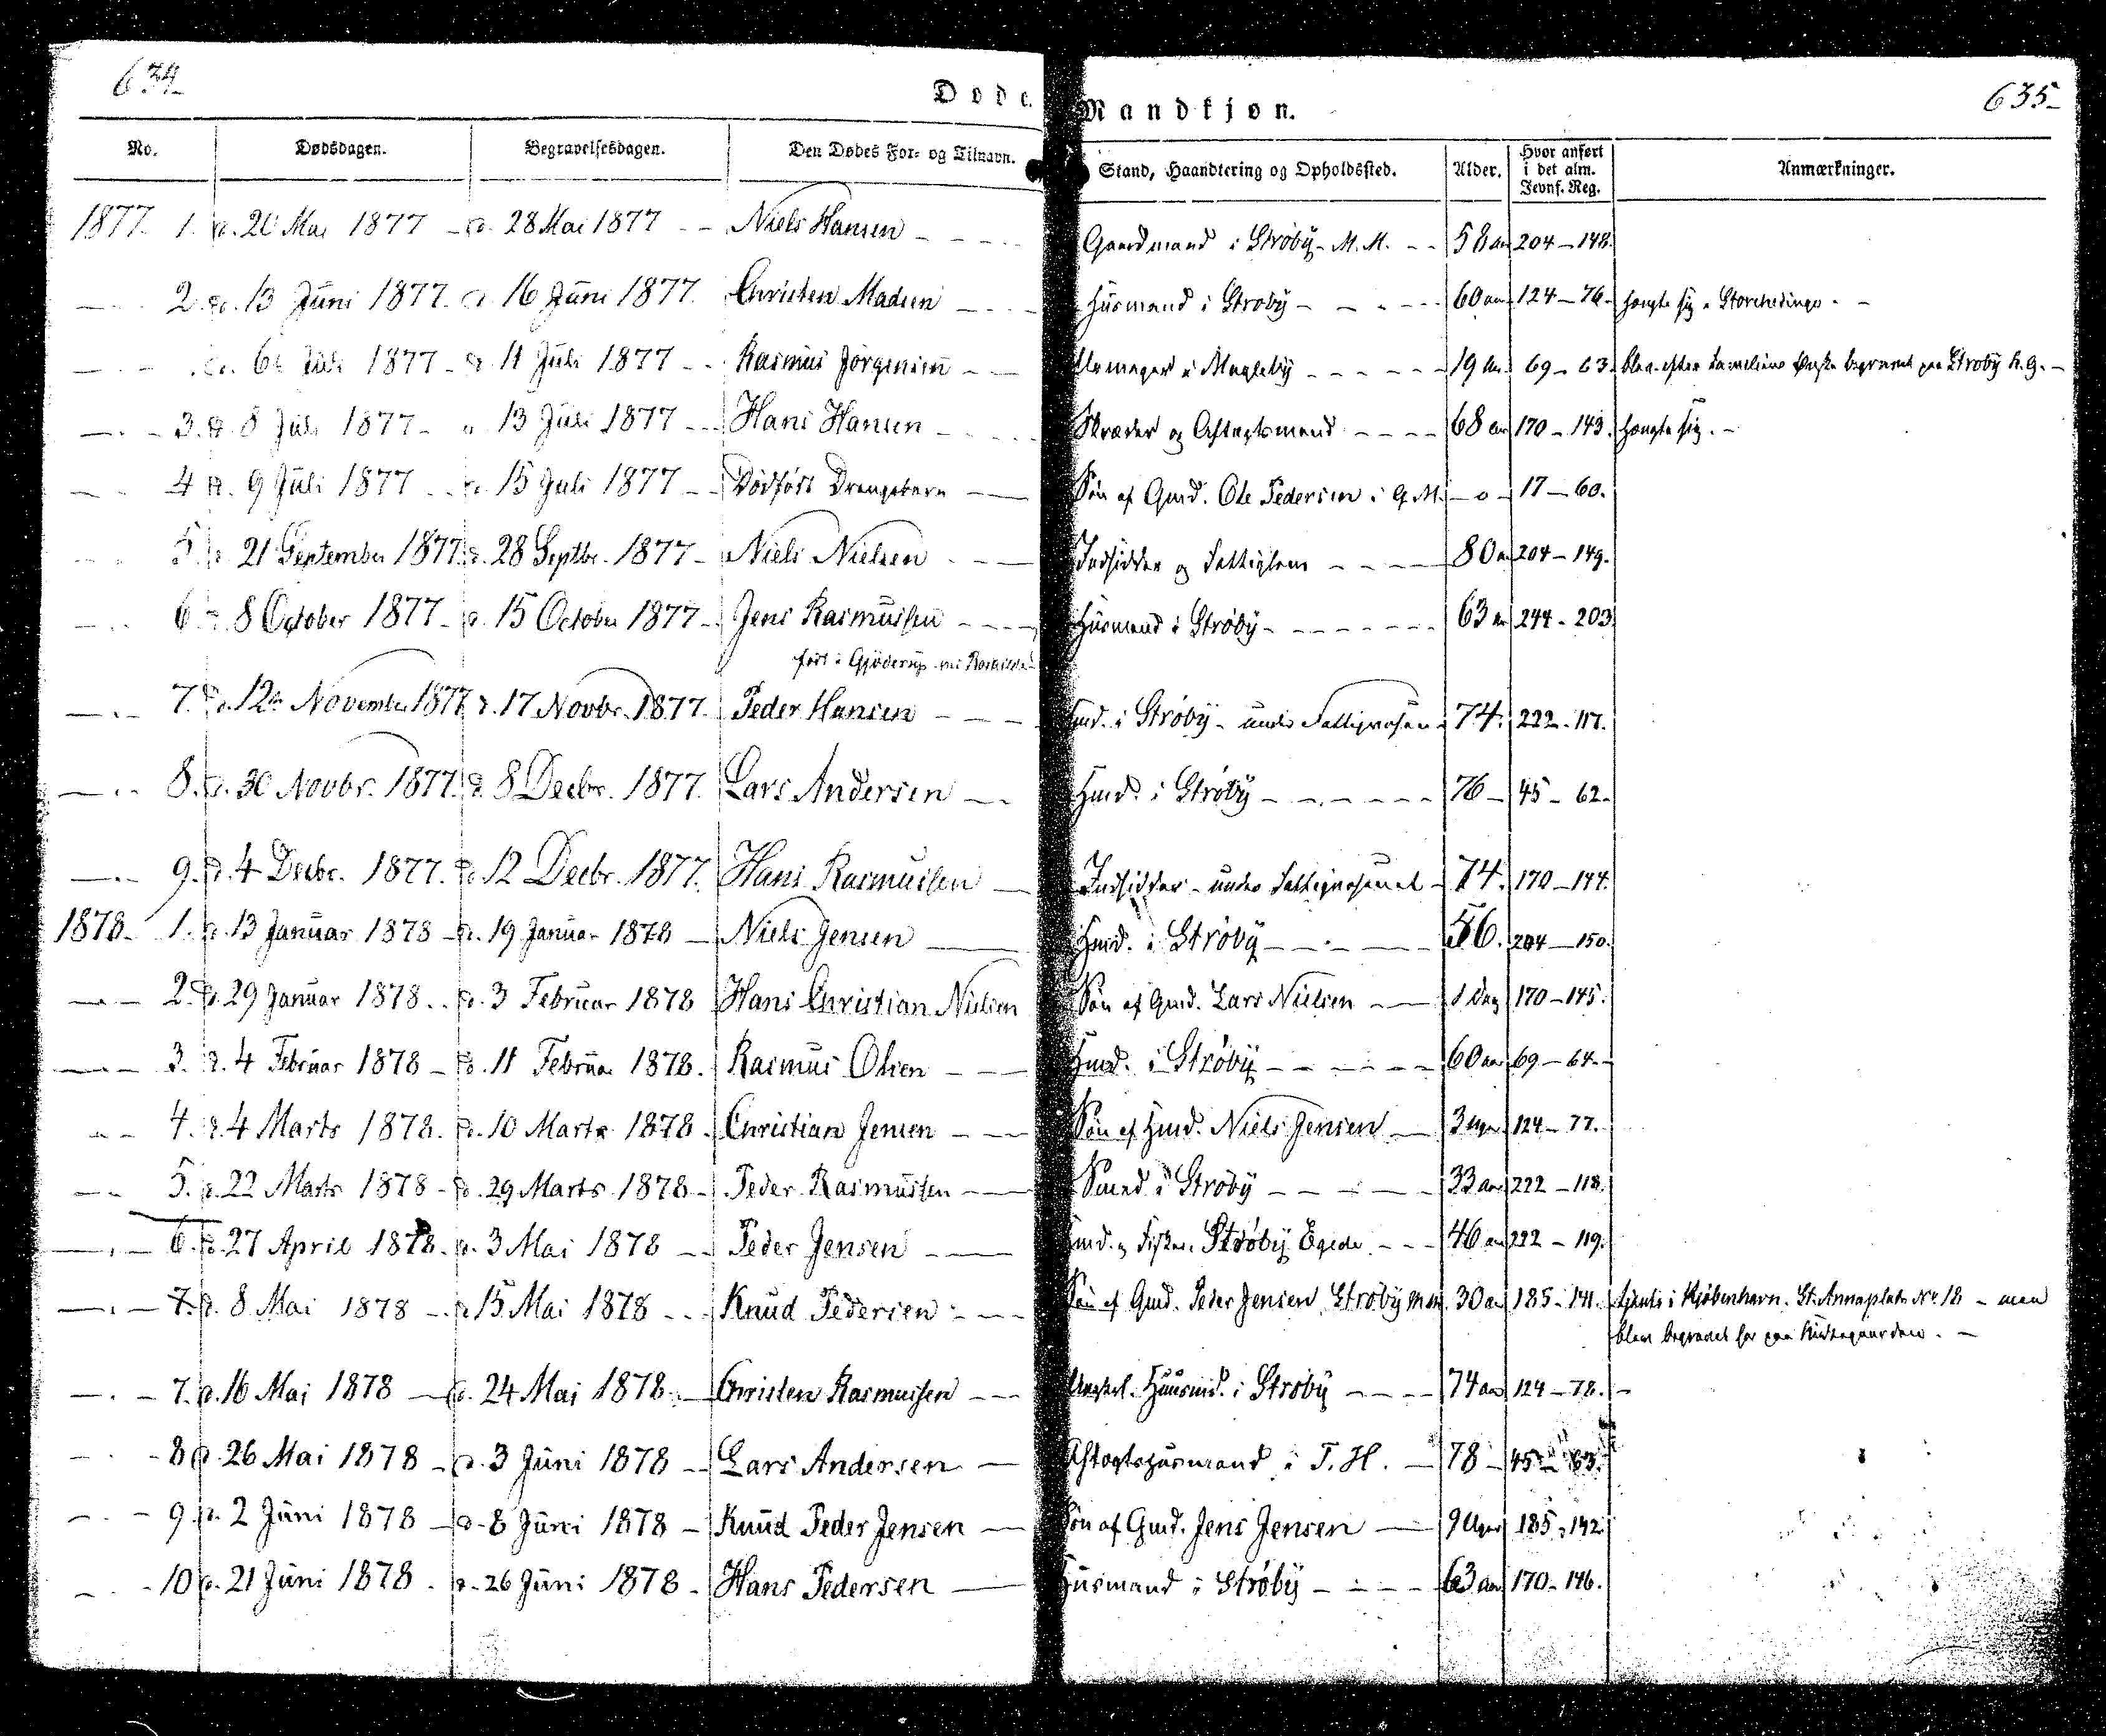 634
635
Døde Mandkjøn.
No. Dødsdagen. Begravelsesdagen. Den Dødes For- og Tilnavn. Stand, Haandtering og Opholdssted. Alder. Hvor anført i det alm. Jevnf. Reg. Anmærkninger.
1877. 1. d. Mai 1877 - d. 28 Mai 1877 - - Niels Hansen - - - Gaardmand i Strøby - M. M. - - 58 aar 204 - 148.
2. d. 13 Juni 1877. d. 16 Juni 1877. Christen Madsen - - - Husmand i Strøby - - - - 60 aar 124 - 76. hængte sig i Storehedinge. -
d. 6te Juli 1877 - d. 11 Juli 1877 - - Rasmus Jørgensen - - i Magleby - - - - 19 Aar 69 - 63. blev efter Familiens Ønske begravet paa Strøby K.G. -
3. d. 8 Juli 1877 - d. 13 Juli 1877 - - Hans Hansen - - - Skræder og Aftægtsmand - - - - 68 aar 170 - 143. hængte sig. -
4 d. 9 Juli 1877 - - d. 15 Juli 1877 - - Dødfødt Drengebarn - Søn af Gmd. Ole Pedersen i G. M. - o - 17 - 60.
5. d. 21 September 1877. d. 28 Septbr. 1877 - Niels Nielsen - - Indsidder og Fattiglem - - - 80 a 204 - 149.
6 d. 8 October 1877 - d. 15 October 1877 - Jens Rasmussen - - - Husmand i Strøby - - - - - 63 aar 244 - 203
født i Gjøderup ved Roskilde
7. d. 12te November 1877 d. 17 Novbr. 1877. Peder Hansen - - - Hmd. i Strøby - under Fattigvæsen - 74. 222 - 117.
8. d. 30 Novbr. 1877. d. 8 Decbr. 1877. Lars Andersen - - Hmd. i Strøby - - - - - 76 - 45 - 62.
9. d. 4 Decbr. 1877. d. 12 Decbr. 1877. Hans Rasmussen - Indsidder - under Fattigvæsenet - 74. 170 - 144.
1878. 1. d. 13 Januar 1878 - d. 19 Januar 1878 - Niels Jensen - Hmd. i Strøby - - - 56. 204 - 150.
2. d. 29 Januar 1878. . d. 3 Februar 1878 Hans Christian Nielsen Søn af Gmd. Lars Nielsen - 1 Dag 170 - 145.
3. d. 4 Februar 1878 - d. 11 Februar 1878. Rasmus Olsen - - - Hmd. i Strøby - - - - 60 aar 69 - 64. -
4. d. 4 Marts 1878. d. 10 Marts 1878. Christian Jensen - - - Søn af Hmd. Niels Jensen - 3 Uger 124 - 77.
5. d. 22 Marts 1878 - d. 29 Marts 1878 - Peder Rasmussen - - Smed i Strøby - - - - 33 aar 222 - 118.
6. d. 27 April 1878. d. 3 Mai 1878 - - Peder Jensen - Hmd. og Fisker i Strøby Egede - - - 46 aar 222 - 119.
7. d. 8 Mai 1878 - d. 15 Mai 1878 - - - Knud Pedersen - - - Søn af Gmd. Peder Jensen Strøby M 30 aar 185 - 141. tjente i Kjøbenhavn. St. Annaplads No. 18 - men
blev begravet her paa Kirkegaarden. -
7. d. 16 Mai 1878 - d. 24 Mai 1878 - Christen Rasmussen - - - Huusmd. i Strøby - - - 74 aar 124 - 78. -
8 d. 26 Mai 1878 - d. 3 Juni 1878 - - Lars Andersen - Aftægtshusmand i T. H. - 78 - 45 - 63.
9. d. 2 Juni 1878 - d. 8 Juni 1878 - Knud Peder Jensen - Søn af Gmd. Jens Jensen - 9 Uger 185 - 142
10 d. 21 Juni 1878. d. 26 Juni 1878 - Hans Pedersen - Husmand i Strøby - - - 63 aar 170 - 146.